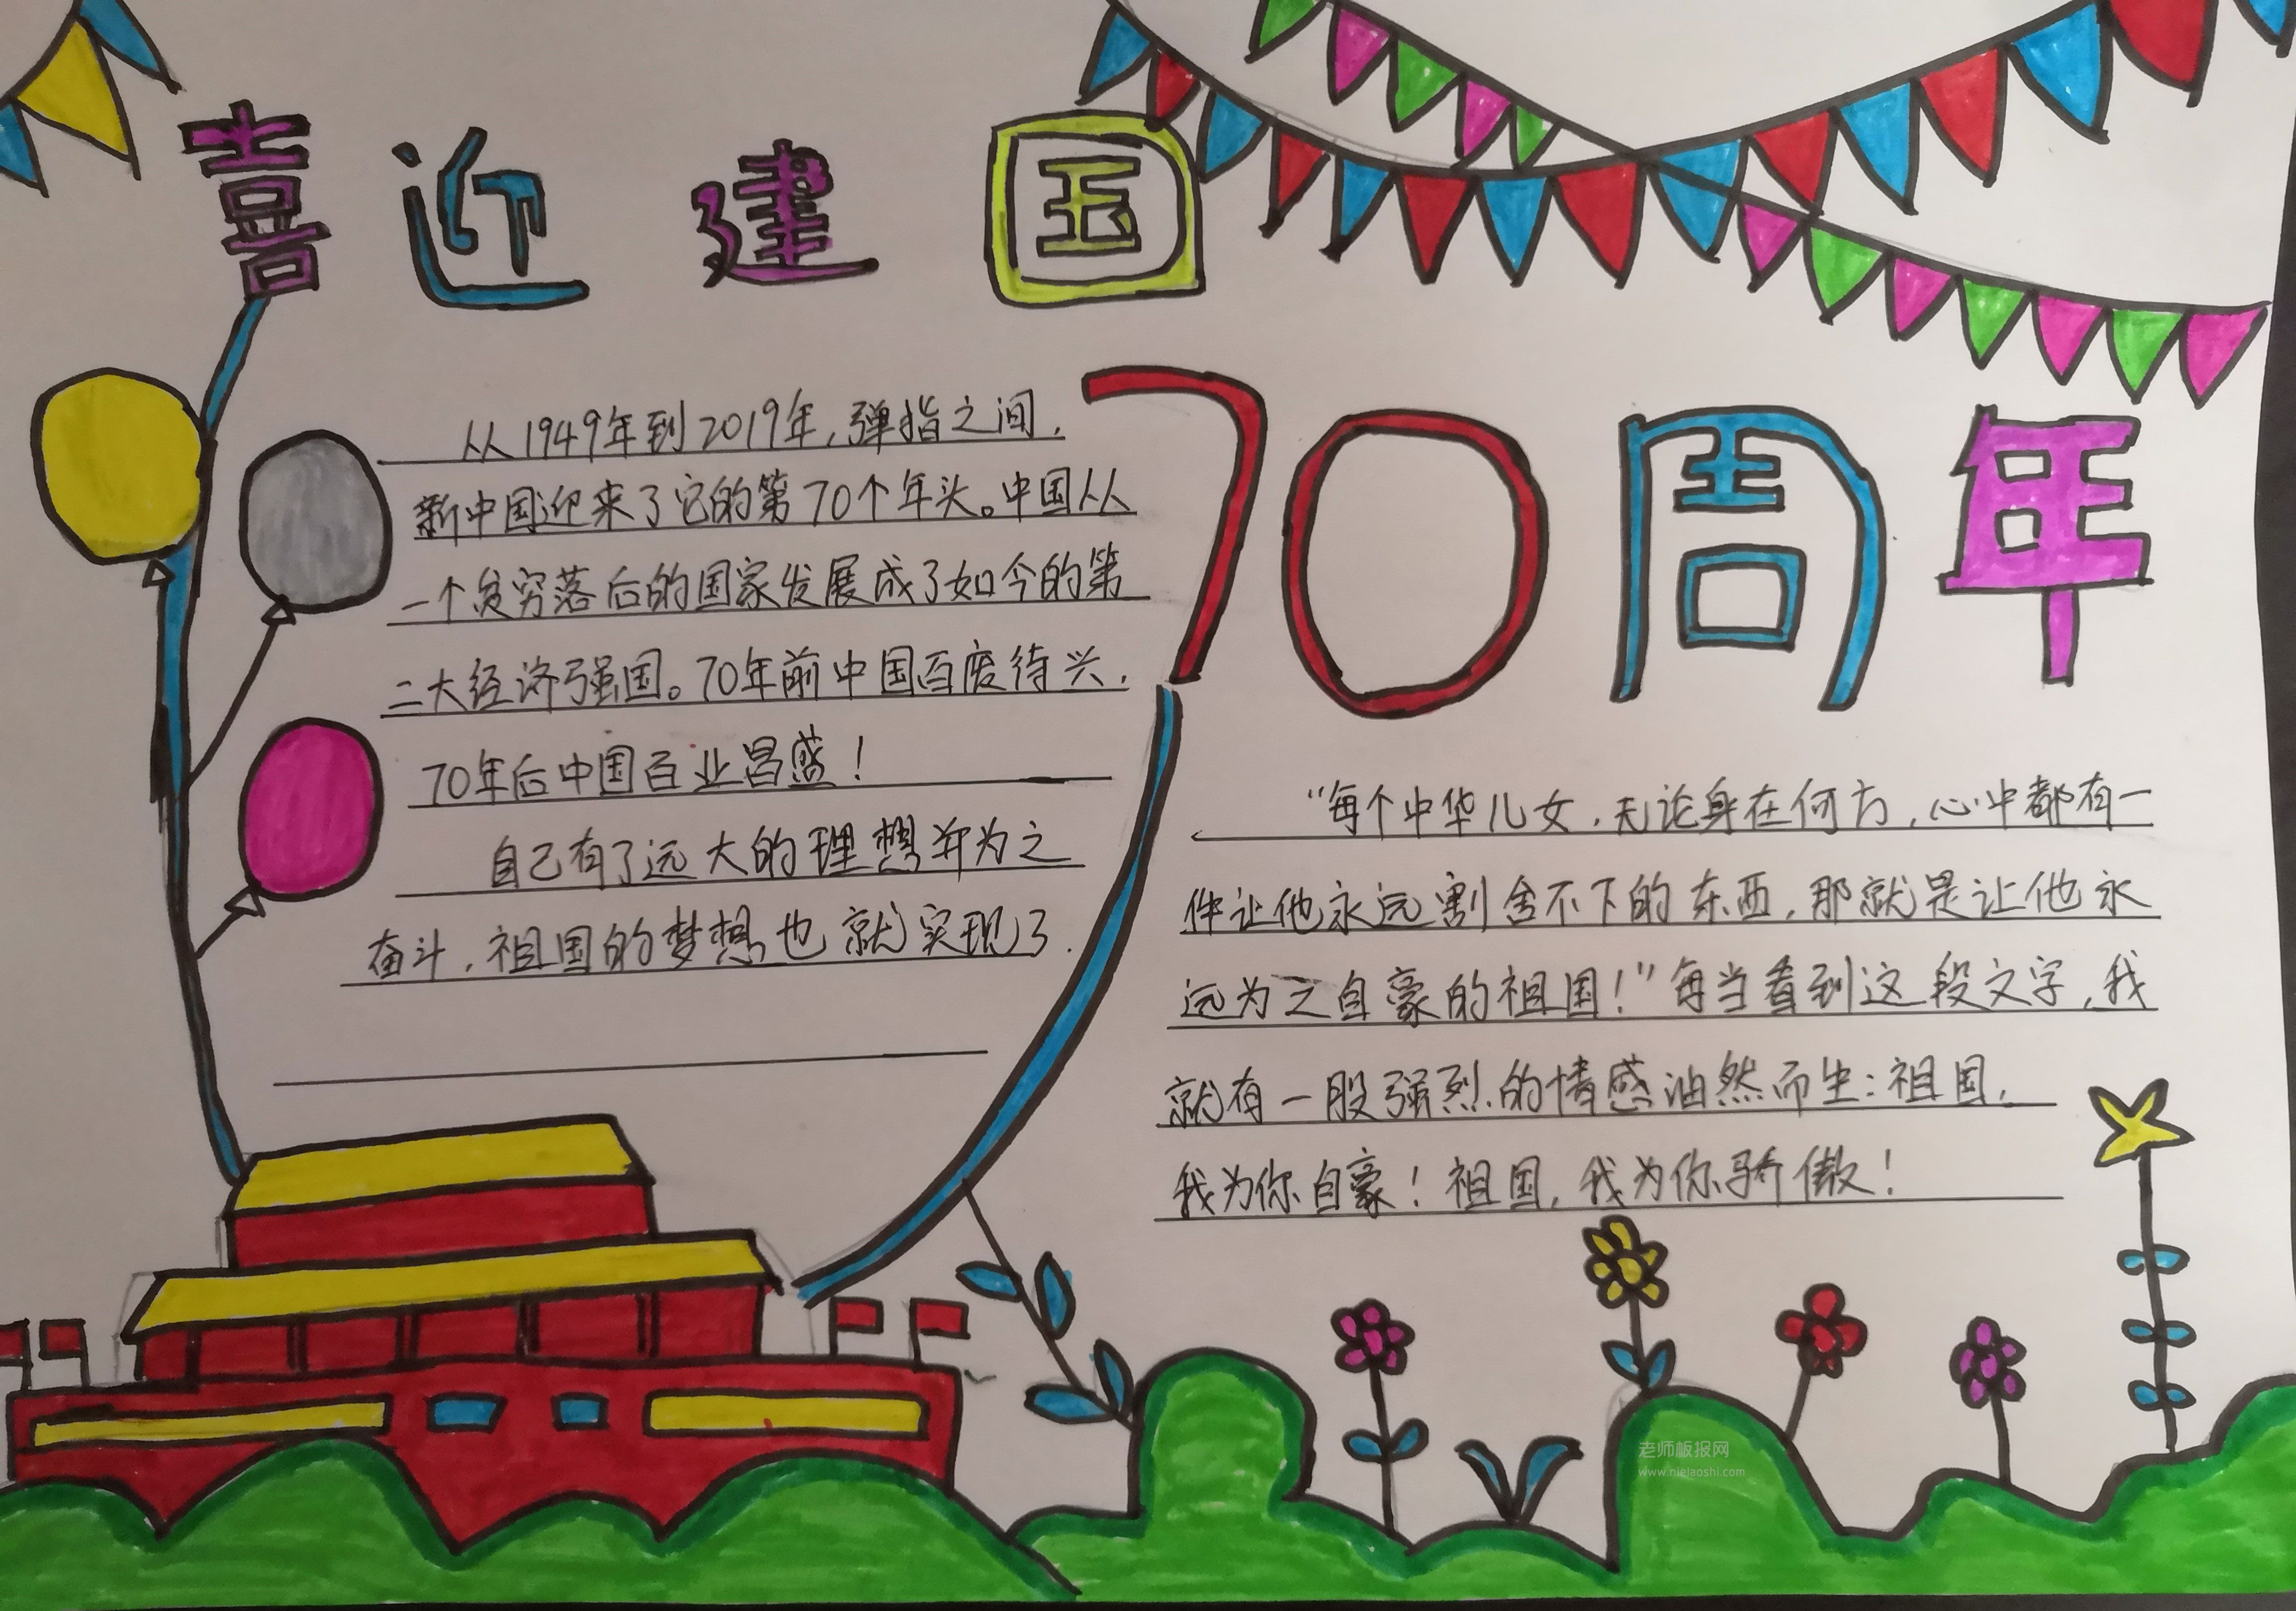 喜迎建国
70周年
从1949年到2019年,弹指之间,
新中国迎来了它的第70个年头。中国从
一个贫穷落后的国家发展成了如今的第
二大经济强国。70年前中国百废待兴,
70年后中国百业昌盛!
自己有了远大的理想并为之
奋斗,祖国的梦想也就实现了.
“每个中华儿女,无论身在何方,心中都有一
件让他永远割舍不下的东西,那就是让他永
远为之自豪的祖国!”每当看到这段文字,我
就有一股强烈的情感油然而生:祖国,
我为你自豪!祖国,我为你骄傲!
老师板报网
www.nielaoshi.com